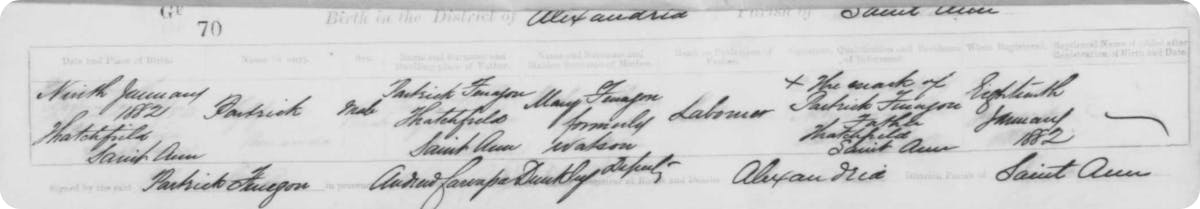 70
Birth in the District of Alexandria Parish of Saint Ann
Date and Place of Birth. Name (if any). Sex. Name and Surname and Dwelling-place of Father. Name and Surname and Maiden Surname of Mother. Rank or Profession of Father. Signature, Qualification and Residence of Informant. When Registered. Baptismal Name if added after Registration of Birth and Date.
Ninth January
1882
Thatchfield
Saint Ann
Patrick
Male
Patrick Finagon
Thatchfield
Saint Ann
Mary Finagon
formerly
Watson
Labourer
X The mark of
Patrick Finagon
Father
Thatchfield
Saint Ann
Eighteenth
January
1882
Signed by the said Patrick Finegon in presence Andrew Dunkley Deputy Registrar of Births and Deaths Alexandria District, Parish of Saint Ann